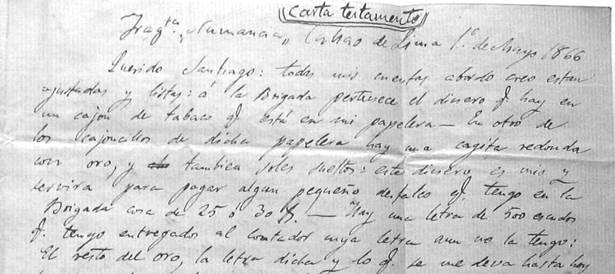 (Carta testamento)
Frag.ta "Numancia" Callao de Lima 1.º de Mayo 1866
Querido Santiago: todas mis cuentas abordo creo estan
ajustadas y listas: á la Brigada pertenece el dinero q. hay en
un cajon de tabaco q. está en mi papelera — En otro de
los cajoncillos de dicha papelera hay una cagita redonda
con oro, y tambien soles sueltos: este dinero es mio y
servira para pagar algun pequeño desfalco q. tengo en la
Brigada cosa de 25 ó 30 $. — Hay una letra de 500 escudos
q. tengo entregados al contador cuya letra aun no la tengo:
El resto del oro, la letra dicha y lo q. se me deva hasta hoy